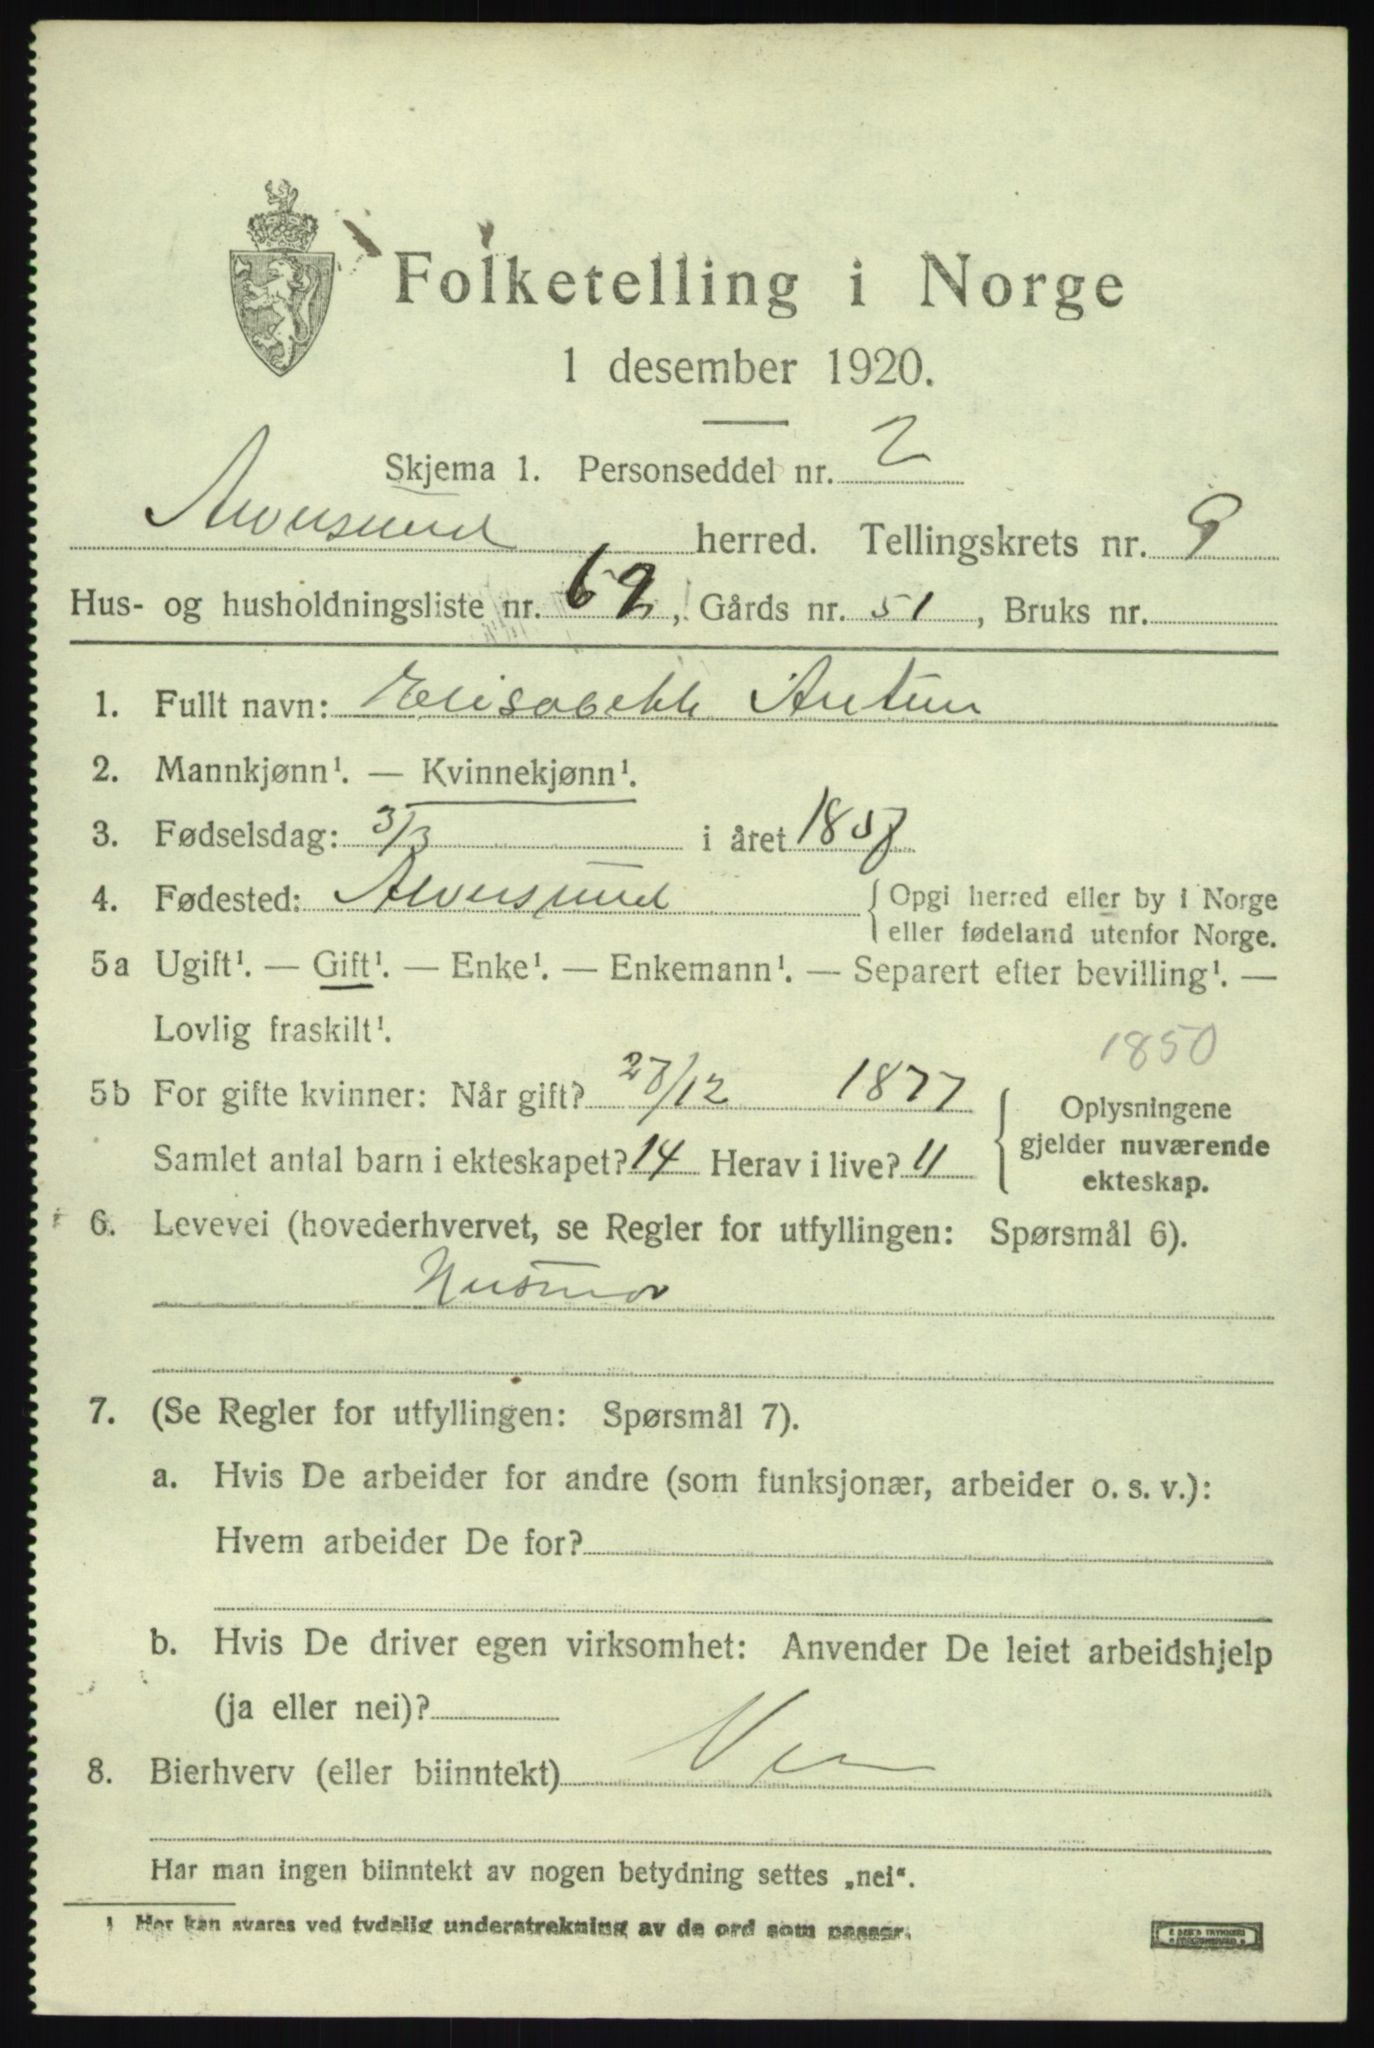 Folketelling i Norge
1 desember 1920.
Skjema 1. Personseddel nr. 2
Alversund herred. Tellingskrets nr. 9
Hus- og husholdningsliste nr. 62, Gårds nr. 51, Bruks nr.
1. Fullt navn: Elisabeth
2. Mannkjønn¹. — Kvinnekjønn¹.
3. Fødselsdag: 3/3 i året 1857
4. Fødested: Alversund { Opgi herred eller by i Norge
eller fødeland utenfor Norge.
5a Ugift¹. — Gift¹. — Enke¹. — Enkemann¹. — Separert efter bevilling¹. —
Lovlig fraskilt¹.
1850
5b For gifte kvinner: Når gift? 27/12 1877
Samlet antal barn i ekteskapet? 14 Herav i live? 11
{ Oplysningene
gjelder nuværende
ekteskap.
6. Levevei (hovederhvervet, se Regler for utfyllingen: Spørsmål 6).
Husmor
7. (Se Regler for utfyllingen: Spørsmål 7).
a. Hvis De arbeider for andre (som funksjonær, arbeider o. s. v.):
Hvem arbeider De for?
b. Hvis De driver egen virksomhet: Anvender De leiet arbeidshjelp
(ja eller nei)?
8. Bierhverv (eller biinntekt) Nei
Har man ingen biinntekt av nogen betydning settes „nei“.
1 Her kan svares ved tydelig understrekning av de ord som passer.